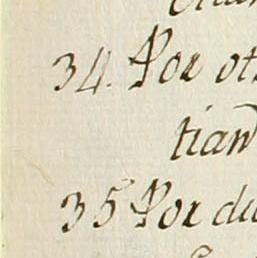 34. Por ot
tian
35 Por du